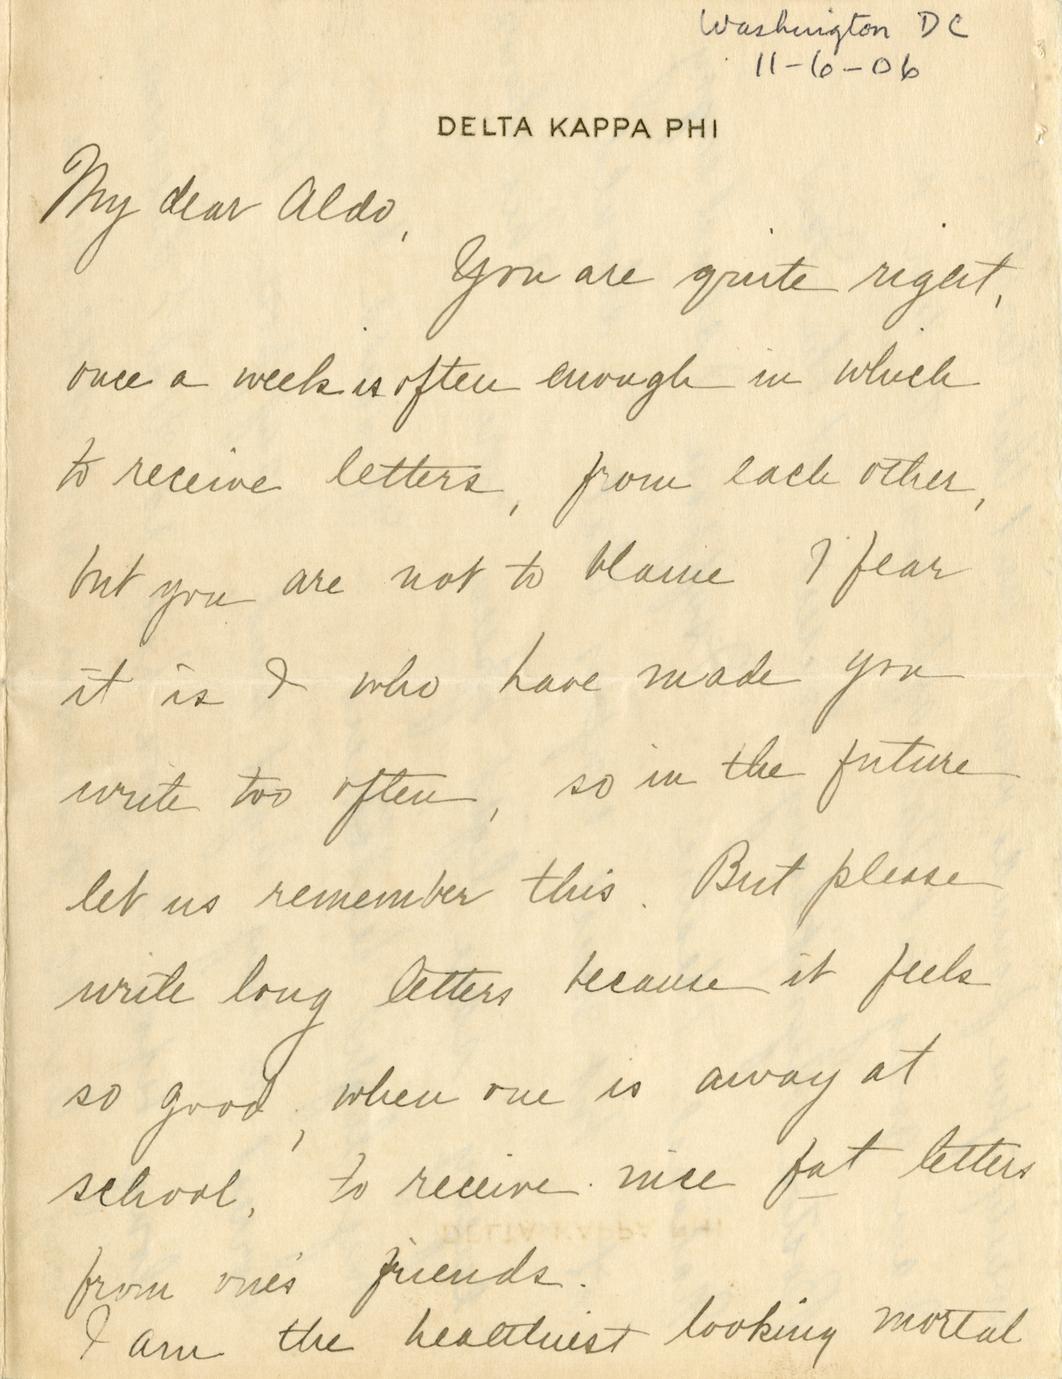 Washington DC
11-6-06
DELTA KAPPA PHI
My dear Aldo,
You are quite right,
once a week is often enough in which
to receive letters, from each other,
but you are not to blame I fear
it is I who have made you
write too often, so in the future
let us remember this. But please
write long letters because it feels
so good, when one is away at
school, to receive nice fat letters
from one's friends.
I am the healthiest looking mortal